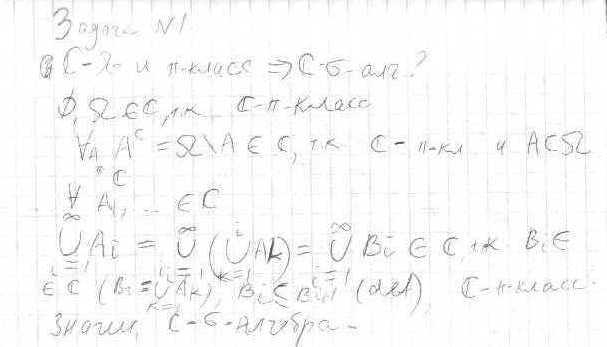 Задача №1
C-λ- и π-класс ⇒ C-σ-алг.?
∅, Ω ∈ C, т.к. C-π-класс
∀A A^c = Ω\A ∈ C, т.к. C-π-кл и A⊂Ω
∈ C
∀ A₁, ... ∈ C
∞⋃i=1 Ai = ∞⋃i=1 (i⋃k=1 Ak) = ∞⋃i=1 Bi ∈ C, т.к. Bi ∈
∈ C (Bi = i⋃k=1 Ak), Bi ⊆ Bi+1 (def), C-π-класс.
Значит, C-σ-алгебра.